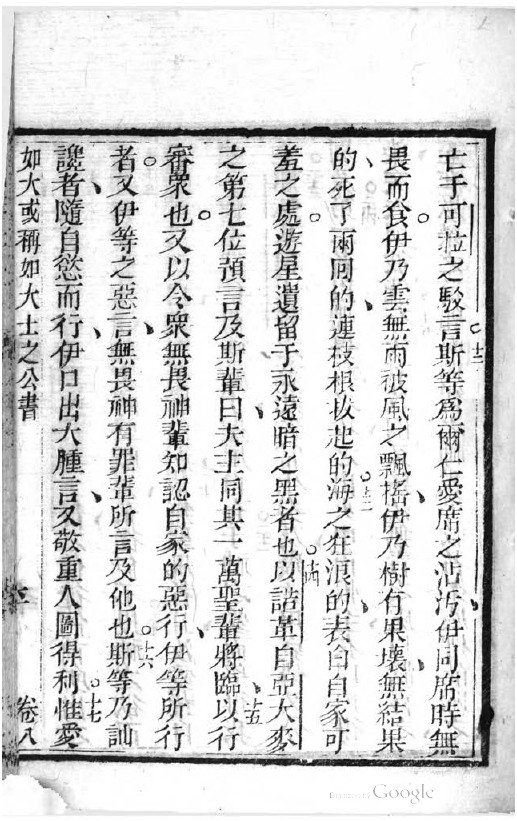 亡于可拉之駁言○十二斯等為爾仁愛席之沾汚伊同席時無
畏而食伊乃雲無雨被風之飄搖伊乃樹有果壞無結果
的死了兩回的連枝根拔起的○十三海之狂浪的表白自家可
羞之處遊星遺留于永遠暗之黑者也○十四以諾革自亞大麥
之第七位預言及斯輩曰夫主同其一萬聖輩將臨○十五以行
審衆也又以令衆無畏神輩知認自家的惡行伊等所行
者又伊等之惡言無畏神有罪輩所言及他也○十六斯等乃訕
讒者隨自慾而行伊口出大腫言又敬重人圖得利○十七惟愛
如大或稱如大士之公書
卷八
Digitized by Google